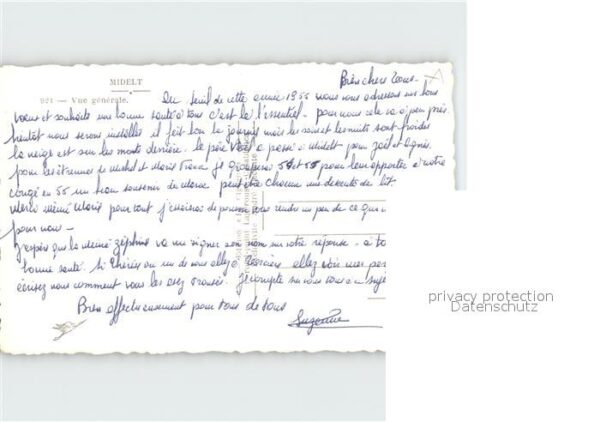 MIDELT
924 — Vue générale.
Bien chers Tous -
Du seuil de cette année 1955 nous vous adressons nos bons
vœux et souhaits une bonne santé à tous c'est là l'essentiel - pour nous cela va à peu près
bientôt nous serons installés il fait bon la journée mais les soirs et les nuits sont froides
la neige est sur les monts derrière. le père Noël a passé à Midelt pour Joël et Agnès.
pour les étrennes de Michel et Marie je grouperai 54 et 55 pour leur apporter à notre
congé en 55 un beau souvenir du Maroc peut être chacun une descente de lit.
Merci Mémé Marie pour tout j'
de pouvoir vous rendre un peu de ce que
pour nous -
J'espère que la Mémé Zéphine va me signer son nom sur votre réponse - à
bonne santé. Si Thérèse ou un de vous allez à
allez voir mes
écrivez nous comment vous les avez trouvés. Je compte sur vous
Bien affectueusement pour tous de tous
Suzanne
privacy protection
Datenschutz